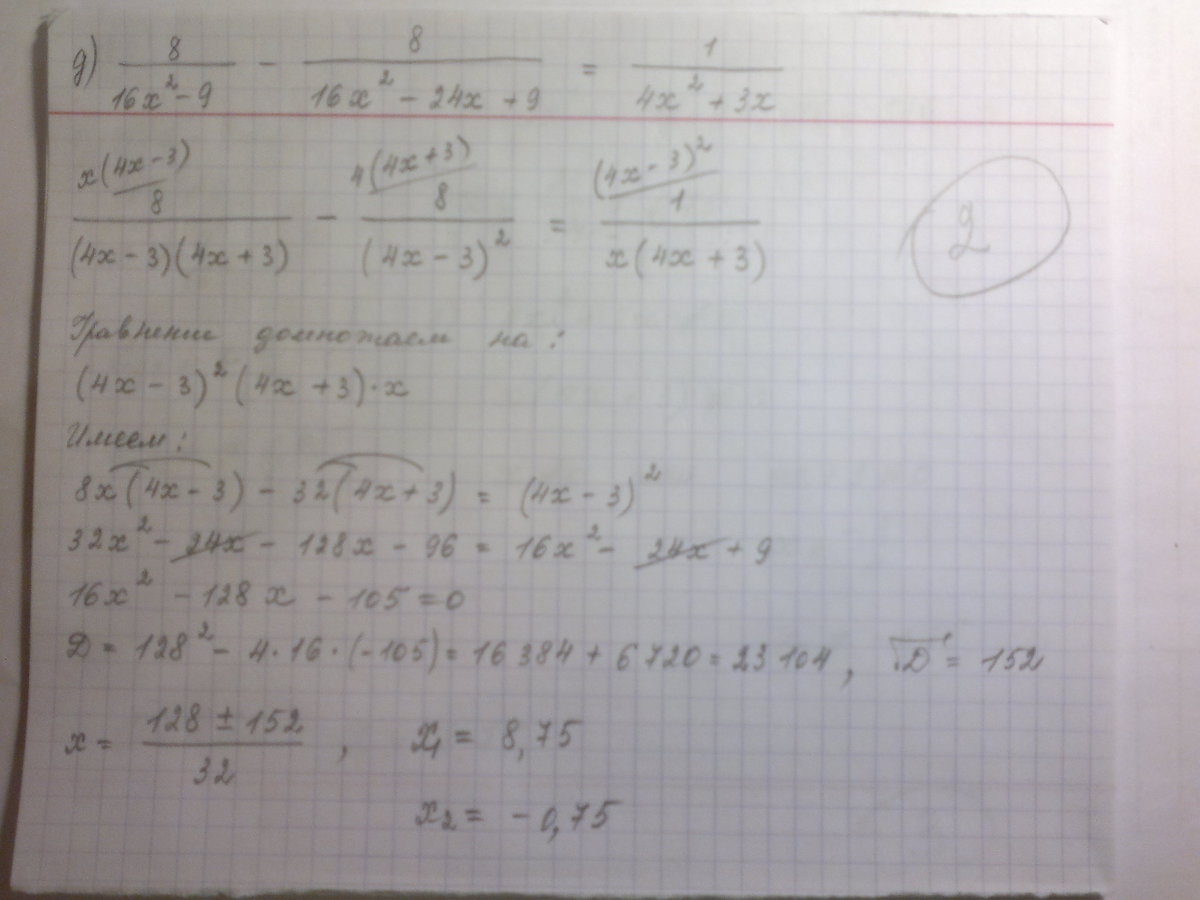 д) 8/(16x² - 9) - 8/(16x² - 24x + 9) = 1/(4x² + 3x)
x(4x - 3) 4(4x + 3) (4x - 3)²
8/((4x - 3)(4x + 3)) - 8/(4x - 3)² = 1/(x(4x + 3))
2
Уравнение домножаем на:
(4x - 3)² (4x + 3)·x
Имеем:
8x(4x - 3) - 32(4x + 3) = (4x - 3)²
32x² - 24x - 128x - 96 = 16x² - 24x + 9
16x² - 128x - 105 = 0
D = 128² - 4·16·(-105) = 16384 + 6720 = 23104, √D = 152
x = (128 ± 152)/32, x₁ = 8,75
x₂ = -0,75